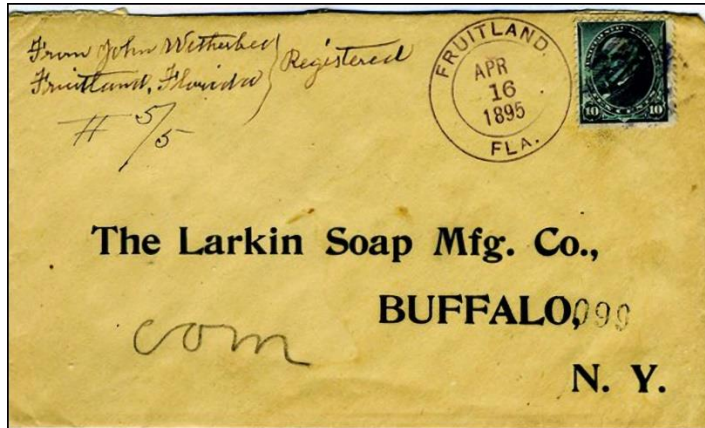 From John Witherbee
Fruitland, Florida
Registered
# 5/5
FRUITLAND.
APR
16
1895
FLA.
10 10
The Larkin Soap Mfg. Co.,
BUFFALO,
099
N. Y.
com